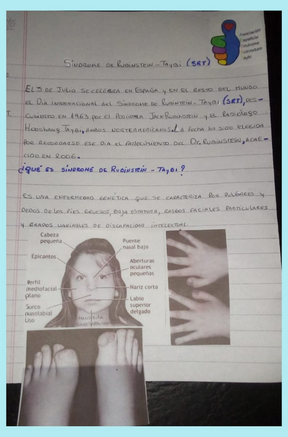 Asociación
Española
Síndrome
Rubinstein
Taybi
SÍNDROME DE RUBINSTEIN-TAYBI (SRT)
EL 3 DE JULIO SE CELEBRA EN ESPAÑA Y EN EL RESTO DEL MUNDO
EL DÍA INTERNACIONAL DEL SÍNDROME DE RUBINSTEIN-TAYBI (SRT), DES-
CUBIERTO EN 1963 POR EL PEDIATRA JACK RUBINSTEIN Y EL RADIÓLOGO
TAYBI, AMBOS NORTEAMERICANOS. LA FECHA HA SIDO ELEGIDA
POR ESE DÍA EL FALLECIMIENTO DEL DR. RUBINSTEIN, ACAE-
CIDO EN 2006.
¿QUÉ ES SÍNDROME DE RUBINSTEIN-TAYBI?
ES UNA ENFERMEDAD GENÉTICA QUE SE CARACTERIZA POR PULGARES Y
DEDOS DE LOS PIES GRUESOS, BAJA ESTATURA, RASGOS FACIALES PARTICULARES
Y GRADOS VARIABLES DE DISCAPACIDAD INTELECTUAL.
Cabeza
pequeña
Puente
nasal bajo
Epicantos
Aberturas
oculares
pequeñas
Perfil
mediofacial
plano
Nariz corta
Surco
nasolabial
liso
Labio
superior
delgado